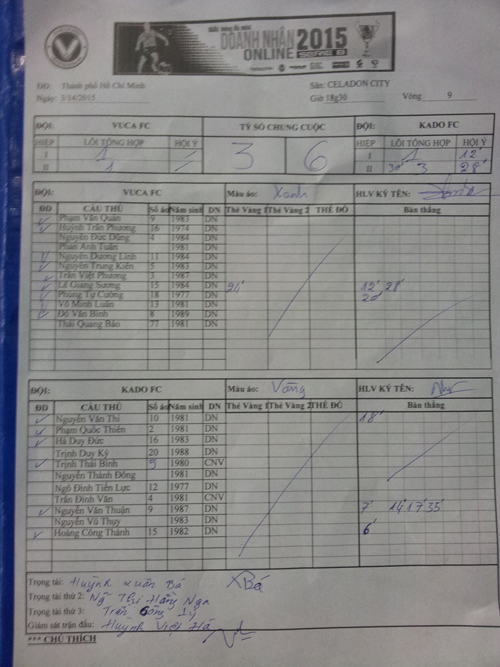 DOANH NHÂN 2015
ONLINE SERIE B
ĐĐ: Thành phố Hồ Chí Minh Sân: CELADON CITY
Ngày: 3/14/2015 Giờ 18g30 Vòng 9
ĐỘI: VUCA FC TỶ SỐ CHUNG CUỘC ĐỘI: KADO FC
HIỆP LỖI TỔNG HỢP HỘI Ý 3 6 HIỆP LỖI TỔNG HỢP HỘI Ý
I 1 I 1 12'
II 1 II 3 28'
ĐỘI: VUCA FC Màu áo: Xanh HLV KÝ TÊN:
ĐD CẦU THỦ Số áo Năm sinh DN Thẻ Vàng 1 Thẻ Vàng 2 THẺ ĐỎ Bàn thắng
Phạm Văn Quân 9 1983 DN
Huỳnh Trần Phương 16 1974 DN
Nguyễn Đức Dũng 4 1984 DN
Phan Anh Tuấn 1981 DN
Nguyễn Dương Linh 11 1984 DN
Nguyễn Trung Kiên 5 1983 DN
Trần Việt Phương 3 1987 DN
Lê Giang Sương 15 1984 DN 12' 28'
Phùng Tự Cường 18 1977 DN 20'
Võ Minh Luân 13 1981 DN
Đỗ Văn Bình 8 1989 DN
Thái Quang Bảo 77 1981 DN
ĐỘI: KADO FC Màu áo: Vàng HLV KÝ TÊN:
ĐD CẦU THỦ Số áo Năm sinh DN Thẻ Vàng 1 Thẻ Vàng 2 THẺ ĐỎ Bàn thắng
Nguyễn Văn Thi 10 1981 DN 18'
Phạm Quốc Thiên 2 1981 DN
Hà Duy Đức 16 1983 DN
Trịnh Duy Kỳ 20 1988 DN
Trịnh Thái Bình 5 1980 CNV
Nguyễn Thành Đông 1981 DN
Ngô Đình Tiến Lực 12 1977 DN
Trần Đình Văn 4 1981 CNV
Nguyễn Văn Thuận 9 1987 DN 7' 14' 17' 35'
Nguyễn Vũ Thụy 1983 DN
Hoàng Công Thành 15 1982 DN 6'
Trọng tài: Huỳnh Xuân Bá XBá
Trọng tài thứ 2: Ngô Thị Hồng Nga
Trọng tài thứ 3: Trần Công Lý
Giám sát trận đấu: Huỳnh Việt Hà
*** CHÚ THÍCH